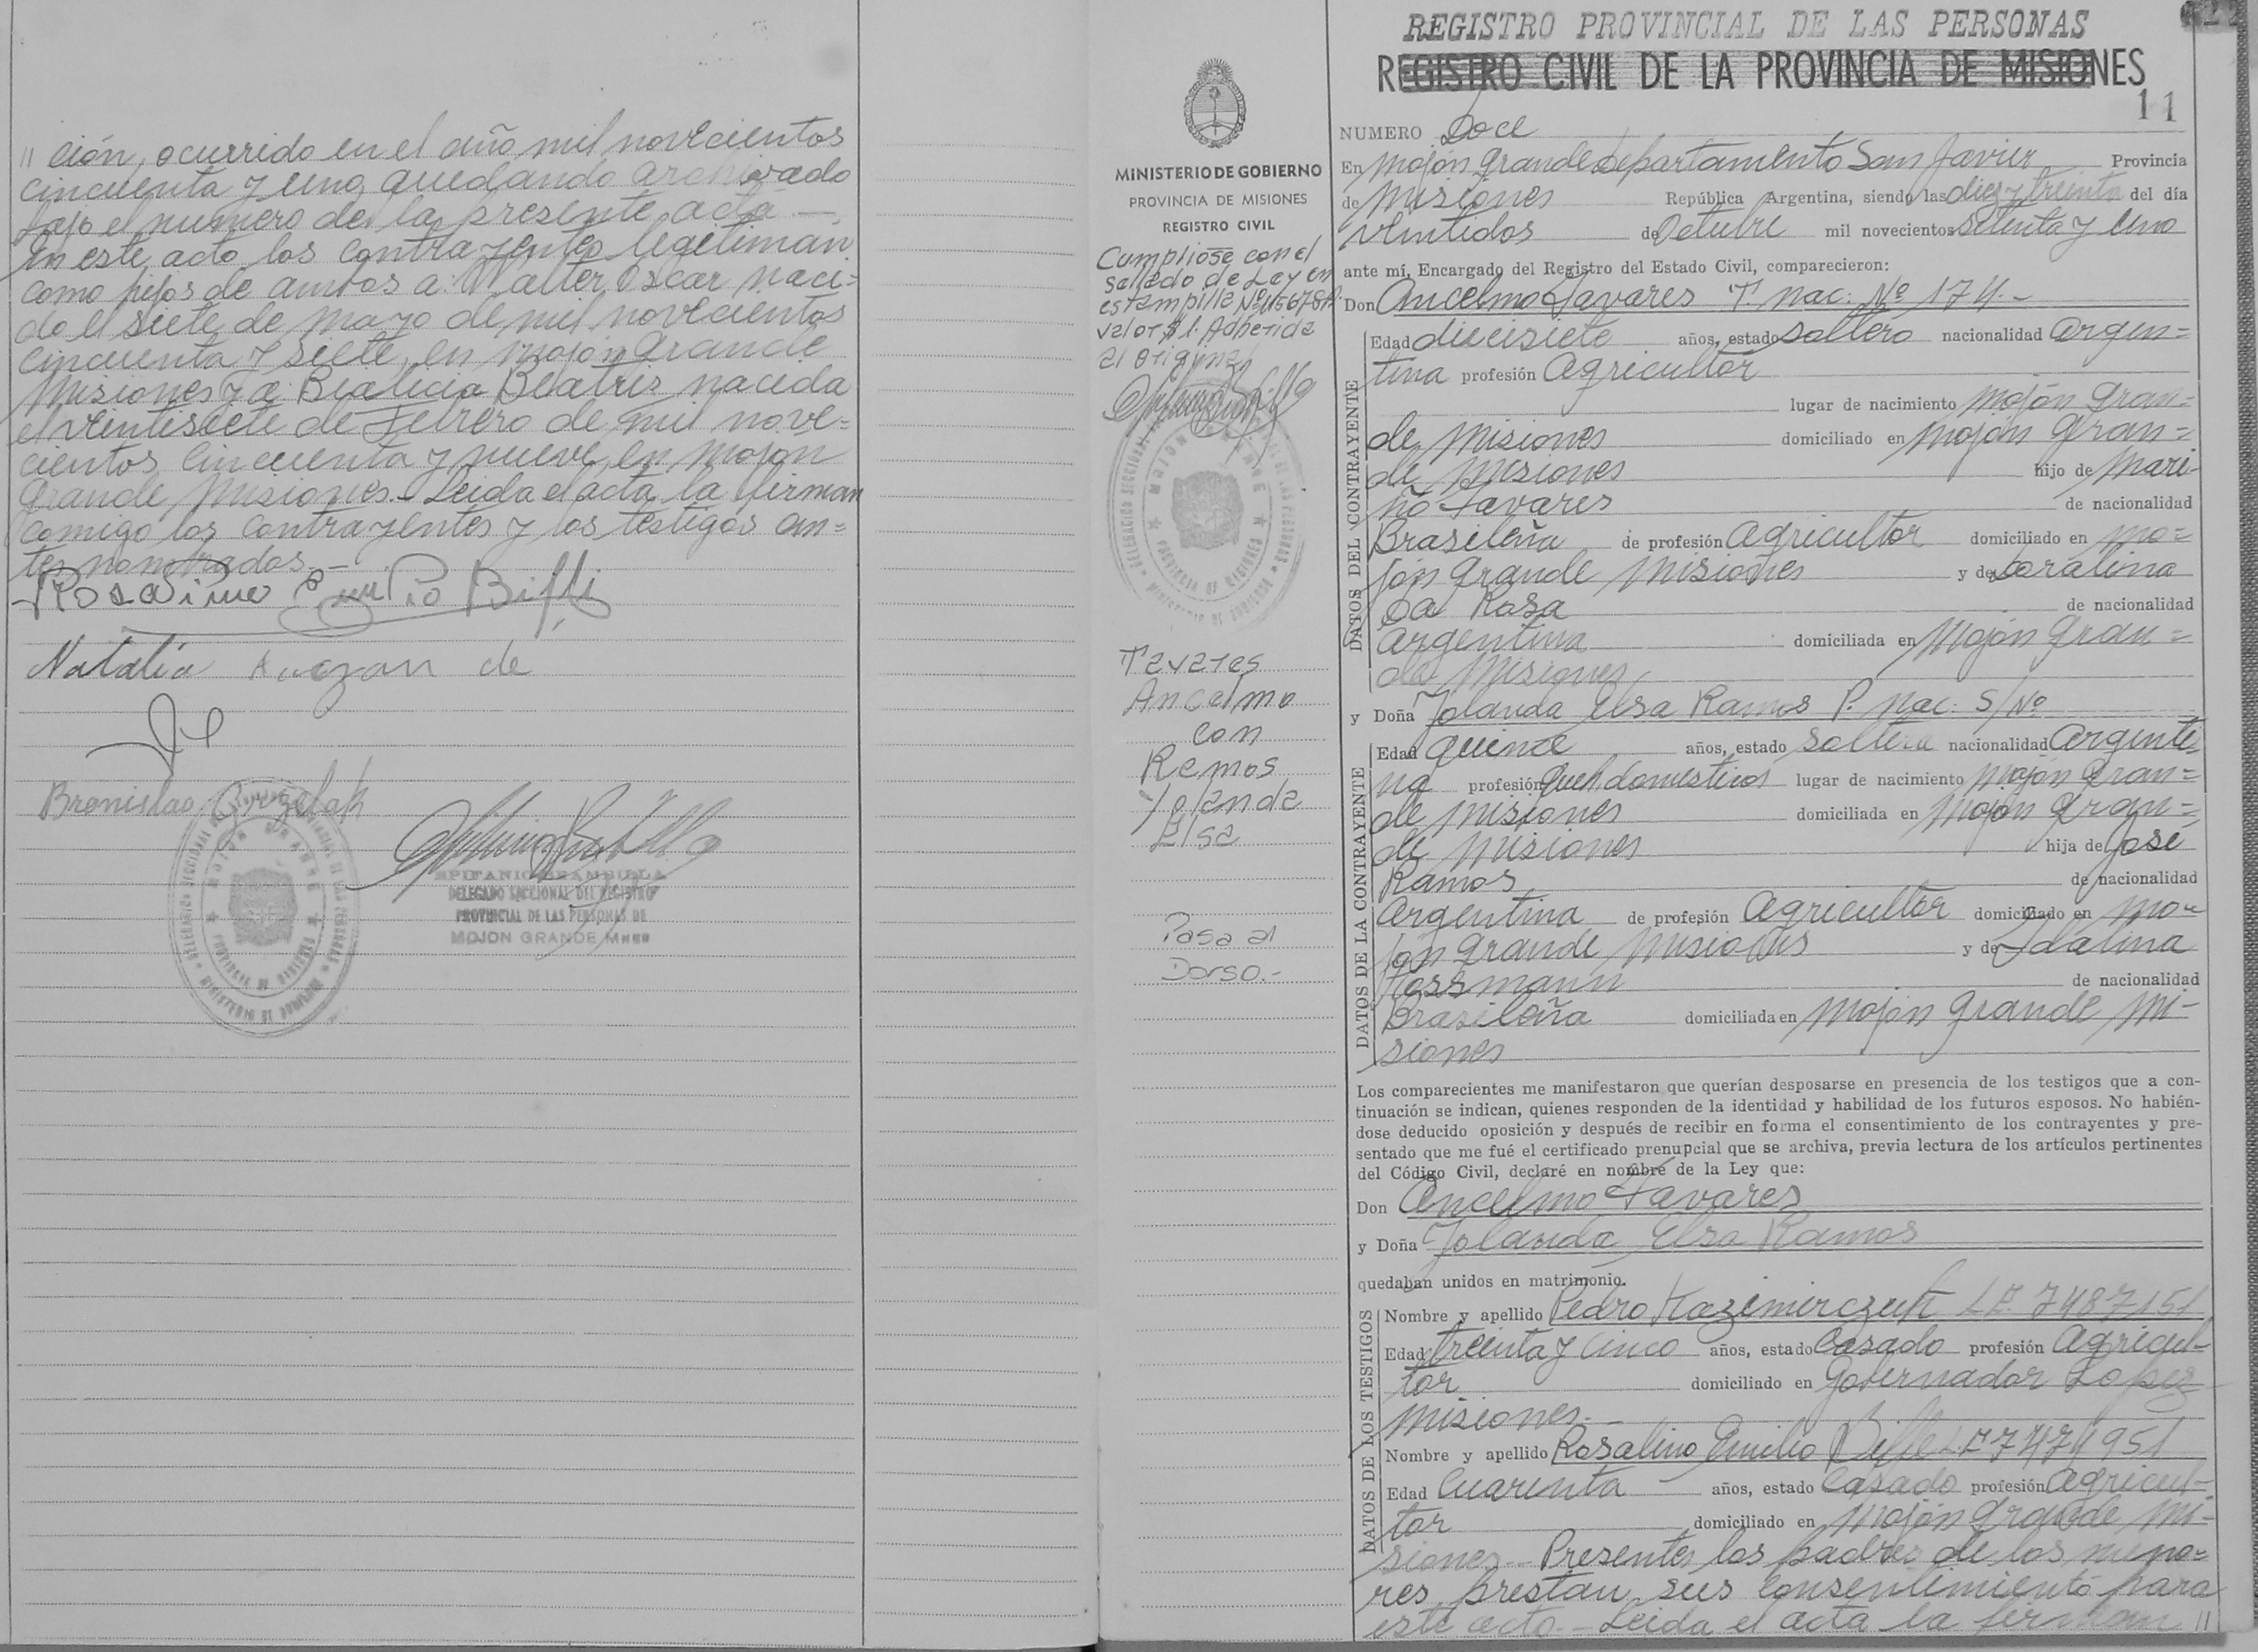 // ción, ocurrido en el año mil novecientos
cincuenta y uno, quedando archivado
bajo el número de la presente acta.—
En este acto los contrayentes legitiman
como hijos de ambos a: Walter Oscar naci=
do el siete de mayo de mil novecientos
cincuenta y siete, en Mojón Grande
Misiones y a: Bealicia Beatris nacida
el veintisiete de Febrero de mil nove=
cientos cincuenta y nueve, en Mojón
Grande, Misiones.- Leida el acta, la firman
comigo los contrayentes y los testigos an=
tes nombrados.—
Rosalino Emilio Biffi
Natalia de
Bronislao Grzelak
EPIFANIO BRAMBILLA
DELEGADO SECCIONAL DEL REGISTRO
PROVINCIAL DE LAS PERSONAS DE
MOJON GRANDE Mnes
MINISTERIO DE GOBIERNO
PROVINCIA DE MISIONES
REGISTRO CIVIL
Cumpliose con el
sellado de Ley en
estampilla Nº
valor $1. Adherida
al original
Tavares
Ancelmo
con
Ramos
Yolanda
Elsa
Pasa al
Dorso.-
REGISTRO PROVINCIAL DE LAS PERSONAS
REGISTRO CIVIL DE LA PROVINCIA DE MISIONES
11
NUMERO Doce
En Mojón Grande Departamento San Javier Provincia
de Misiones República Argentina, siendo las diez y treinta del día
ventidos de Octubre mil novecientos setenta y uno
ante mí, Encargado del Registro del Estado Civil, comparecieron:
Don Ancelmo Tavares T. nac: Nº 174.-
DATOS DEL CONTRAYENTE
Edad diecisiete años, estado soltero nacionalidad Argen=
tina profesión Agricultor
lugar de nacimiento Mojón Gran=
de, Misiones domiciliado en Mojón Gran=
de Misiones hijo de Mari-
ño Tavares de nacionalidad
Brasileña de profesión Agricultor domiciliado en Mo=
jón Grande Misiones y de Coralina
Da Rosa de nacionalidad
Argentina domiciliada en Mojón Gran=
de Misiones
y Doña Jolanda Elsa Ramos P. nac: S/Nº
DATOS DE LA CONTRAYENTE
Edad quince años, estado soltera nacionalidad Argenti
na profesión Queh domesticos lugar de nacimiento Mojón Gran=
de Misiones domiciliada en Mojón Gran=
de Misiones hija de José
Ramos de nacionalidad
Argentina de profesión Agricultor domiciliado en Mo=
jón Grande, Misiones y de Idalina
Hossmann de nacionalidad
Brasileña domiciliada en Mojón Grande Mi-
siones
Los comparecientes me manifestaron que querían desposarse en presencia de los testigos que a con-
tinuación se indican, quienes responden de la identidad y habilidad de los futuros esposos. No habién-
dose deducido oposición y después de recibir en forma el consentimiento de los contrayentes y pre-
sentado que me fué el certificado prenupcial que se archiva, previa lectura de los artículos pertinentes
del Código Civil, declaré en nombre de la Ley que:
Don Ancelmo Tavares
y Doña Jolanda Elsa Ramos
quedaban unidos en matrimonio.
DATOS DE LOS TESTIGOS
Nombre y apellido Pedro Kazimirczuk L.E. 7487151
Edad treinta y cinco años, estado Casado profesión Agricul-
tor domiciliado en Gobernador Lopez
Misiones.-
Nombre y apellido Rosalino Emilio Biffi L.E 7474951
Edad Cuarenta años, estado Casado profesión Agricul-
tor domiciliado en Mojón Grande Mi-
siones.- Presentes los padres de los meno=
res, prestan sus consentimiento para
este acto.- Leida el acta la firman //